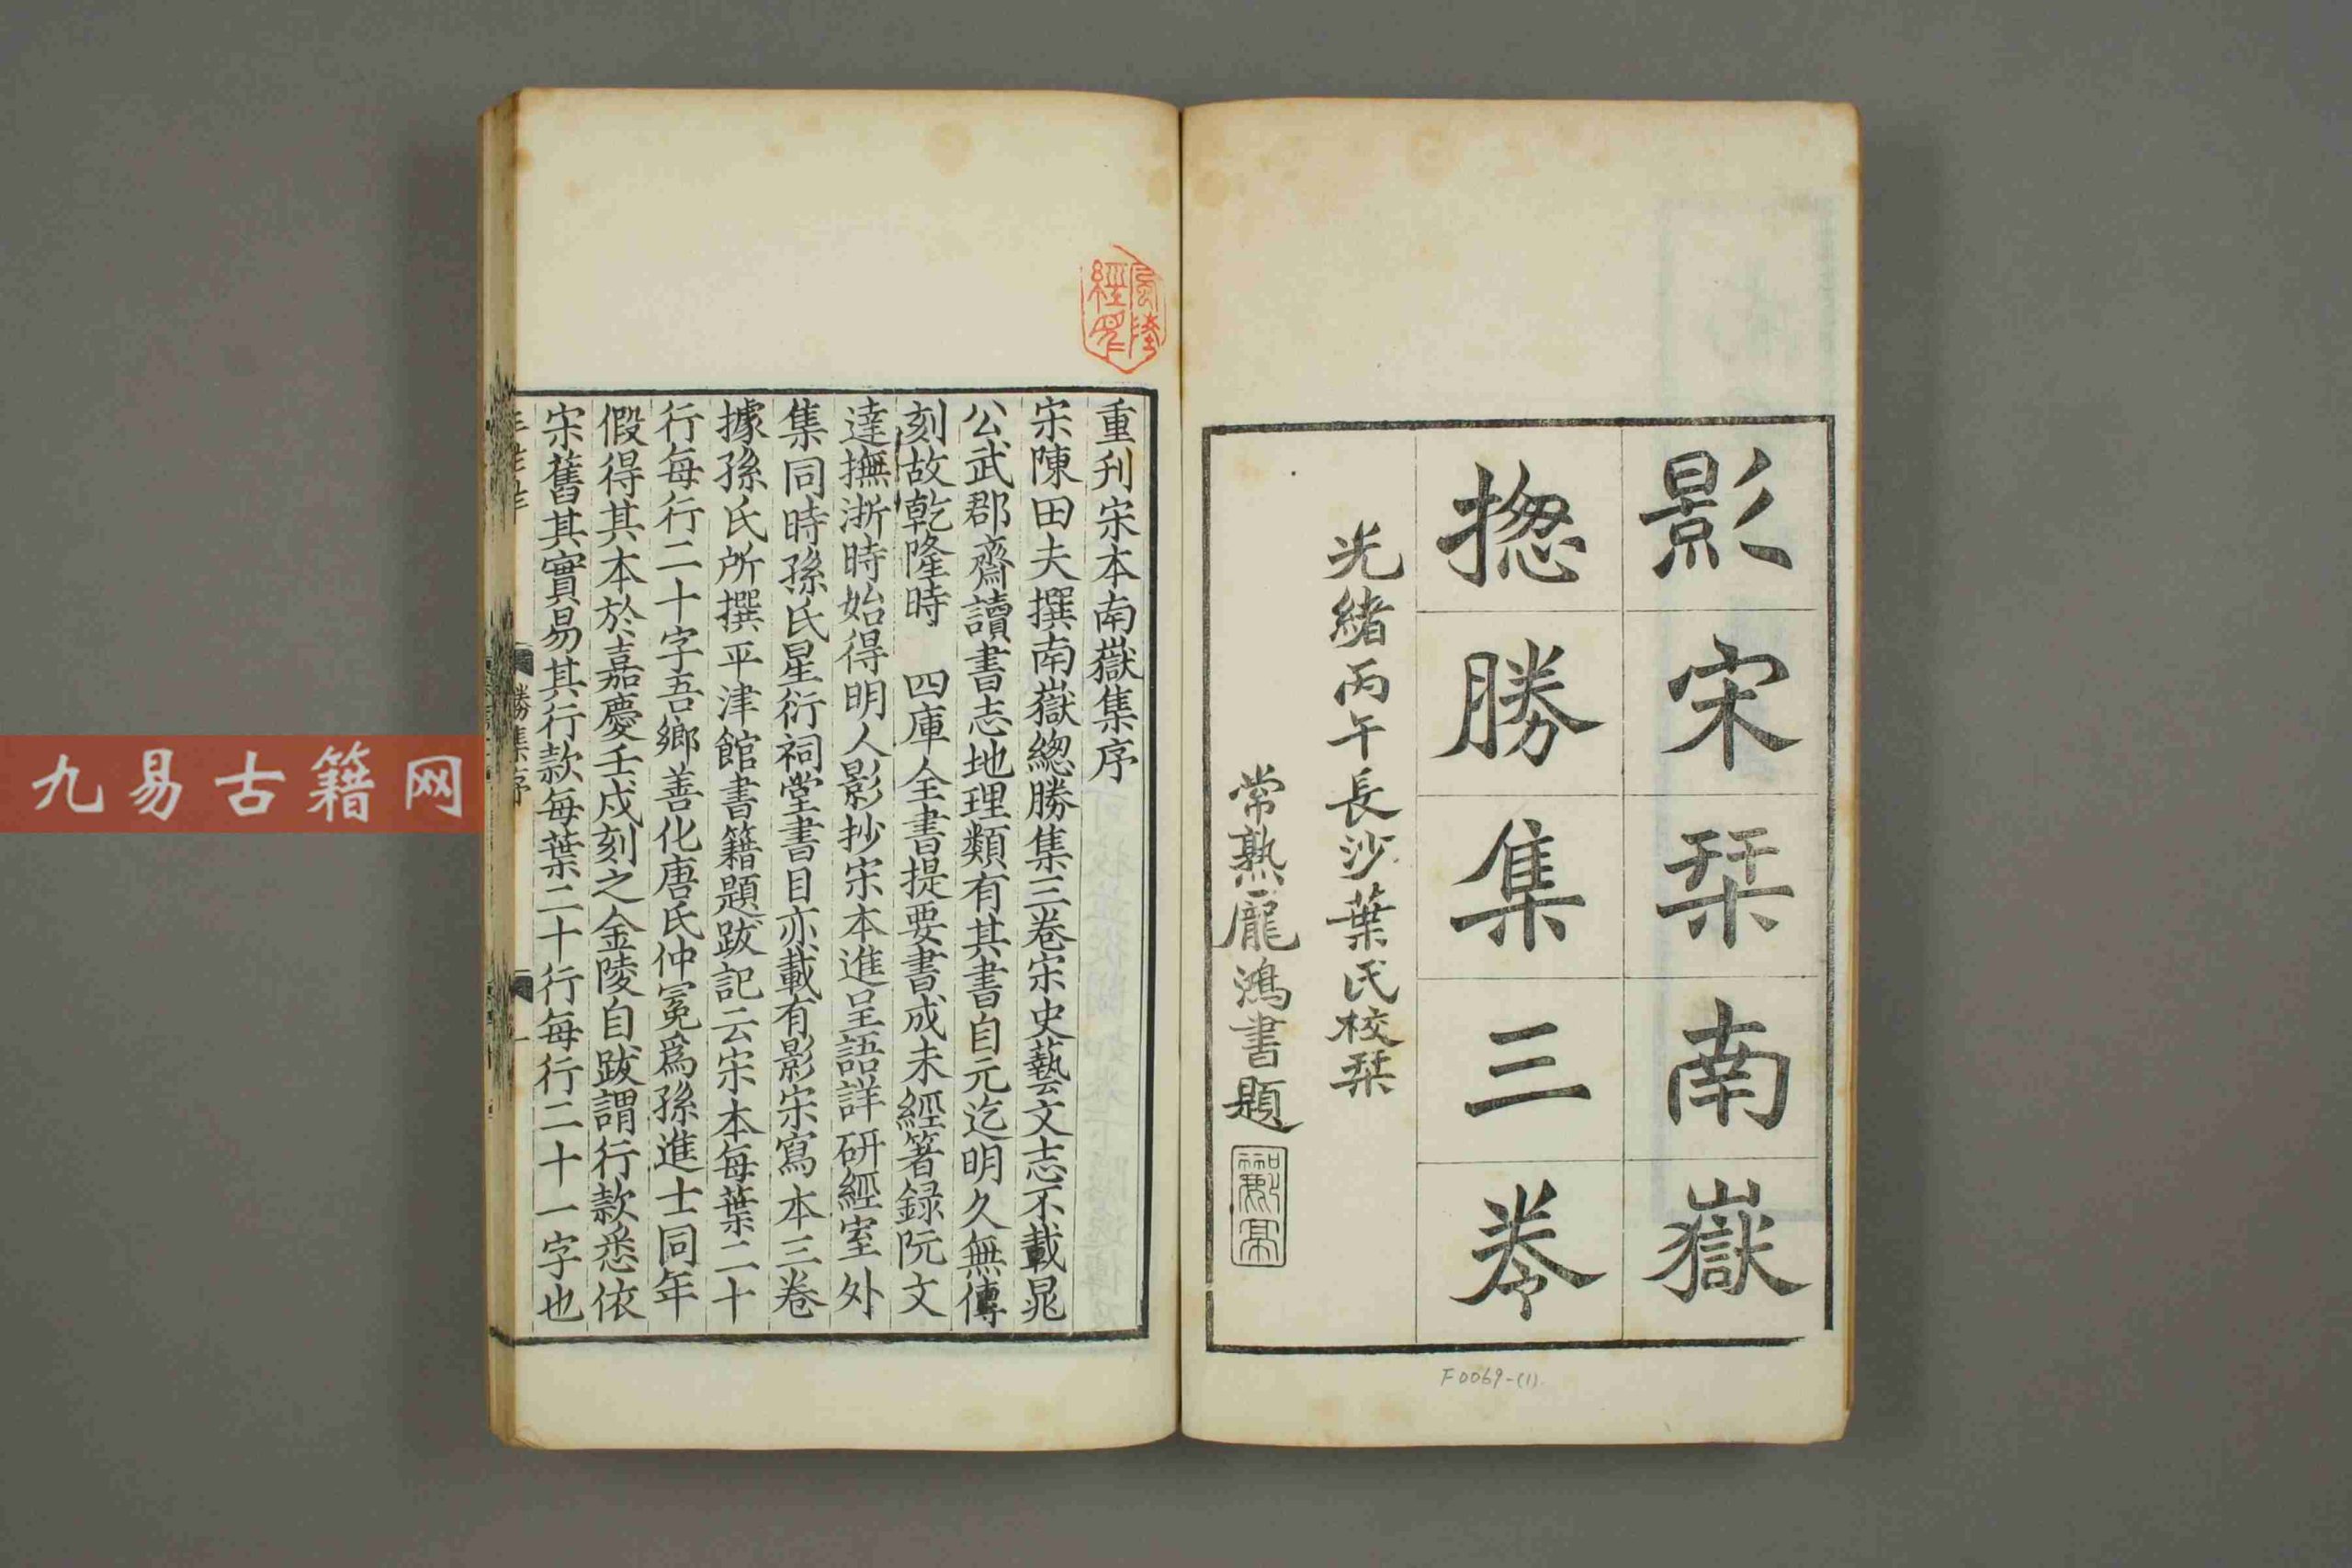 影宋栞南嶽
揔勝集三卷
光緒丙午長沙葉氏校栞
常熟龐鴻書題
重刋宋本南嶽集序
宋陳田夫撰南嶽緫勝集三卷宋史藝文志不載晁
公武郡齋讀書志地理類有其書自元迄明久無傳
刻故乾隆時　四庫全書提要書成未經著録阮文
達撫浙時始得明人影抄宋本進呈語詳研經室外
集同時孫氏星衍祠堂書目亦載有影宋寫本三卷
據孫氏所撰平津館書籍題跋記云宋本每葉二十
行每行二十字吾鄉善化唐氏仲冕爲孫進士同年
假得其本於嘉慶壬戌刻之金陵自跋謂行款悉依
宋舊其實易其行款每葉二十行每行二十一字也
勝集序
一
九易古籍网
F0069-(1)